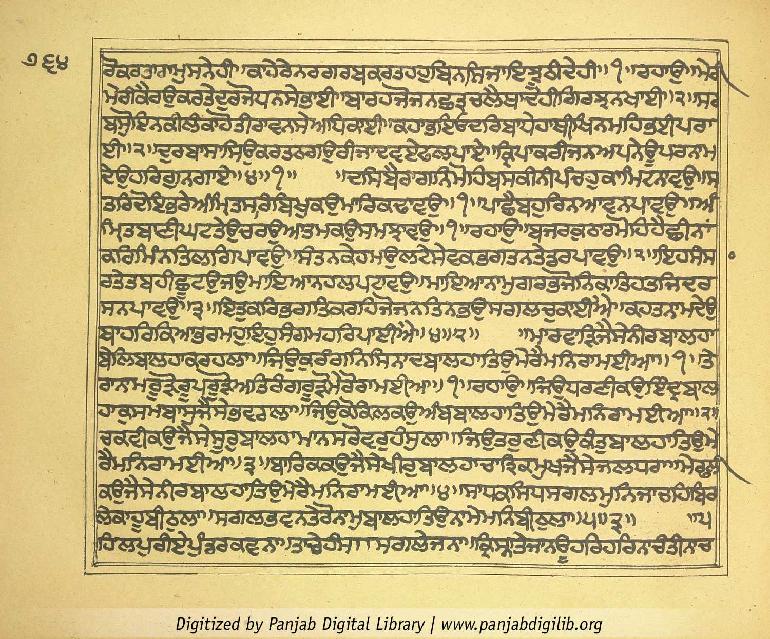 ੭੬੪
ਰੋਕਰਤਾਰਾਮੁਸਨੇਹੀ॥ਕਾਹੇਰੇਨਰਗਰਬਕਰਤਹਹੁਬਿਨਸਿਜਾਇਝੂਠੀਦੇਹੀ॥੧॥ਰਹਾਉ॥ਮੇਰੀ
ਮੇਰੀਕੈਰਉਕਰਤੇਦੁਰਜੋਧਨਸੇਭਾਈ॥ਬਾਰਹਜੋਜਨਛਤ੍ਰੁਚਲੈਥਾਦੇਹੀਗਿਰਝਨਖਾਈ॥੨॥ਸਰ
ਬਸੋੁਇਨਕੀਲੰਕਾਹੋਤੀਰਾਵਨਸੇਅਧਿਕਾਈ॥ਕਹਾਭਇਓਦਰਿਬਾਧੇਹਾਥੀਖਿਨਮਹਿਭਈਪਰਾ
ਈ॥੩॥ਦੁਰਬਾਸਾਸਿਉਕਰਤਠਗਉਰੀਜਾਦਵਏਫਲਪਾਏ॥ਕ੍ਰਿਪਾਕਰੀਜਨਅਪਨੇਊਪਰਨਾਮ
ਦੇਉਹਰਿਗੁਨਗਾਏ॥੪॥੧॥ ਦਸਬੈਰਾਗਨਿਮੋਹਿਬਸਕੀਨੀਪੰਚਹੁਕਾਮਿਟਨਾਵਉ॥ਸ
ਤਰਿਦੋਇਭਰੇਅੰਮ੍ਰਿਤਸਰਿਬਿਖੁਕਉਮਾਰਿਕਢਾਵਉ॥੧॥ਪਾਛੈਬਹੁਰਿਨਆਵਨਪਾਵਉ॥ਅੰ
ਮ੍ਰਿਤਬਾਣੀਘਟਤੇਉਚਰਉਆਤਮਕਉਸਮਝਾਵਉ॥੧॥ਰਹਾਉ॥ਬਜਰਕੁਠਾਰਮੋਹਿਹੈਛੀਨਾਂ
ਕਰਿਮਿੰਨਤਿਲਗਿਪਾਵਉ॥ਸੰਤਨਕੇਹਮਉਲਟੇਸੇਵਕਭਗਤਨਤੇਡਰਪਾਵਉ॥੨॥ਇਹਸੰਸਾ
ਰਤੇਤਬਹੀਛੂਟਉਜਉਮਾਇਆਨਹਲਪਟਾਵਉ॥ਮਾਇਆਨਾਮੁਗਰਭਜੋਨਿਕਾਤਿਹਤਜਿਦਰ
ਸਨਪਾਵਉ॥੩॥ਇਤੁਕਰਿਭਗਤਿਕਰਹਿਜੋਜਨਤਿਨਭਉਸਗਲਚੁਕਾਈਐ॥ਕਹਤਨਾਮਦੇਉ
ਬਾਹਰਿਕਿਆਭਰਮਹੁਇਹੁਸੰਗਮਹਰਿਪਾਈਐ॥੪॥੨॥ ਮਾਰਵਾੜਿਜੈਸੇਨੀਰਬਾਲਹਾ
ਬੇਲਿਬਾਲਹਾਕਰਹਲਾ॥ਜਿਉਕੁਰੰਗਨਿਸਿਨਾਦਬਾਲਹਾਤਿਉਮੇਰੈਮਨਿਰਾਮਈਆ॥੧॥ਤੇ
ਰਾਨਾਮਰੂੜੋਰੂਪੁਰੂੜੋਅਤਿਰੰਗਰੂੜੋਮੇਰੋਰਾਮਈਆ॥੧॥ਰਹਾਉ॥ਜਿਉਧਰਣੀਕਉਇੰਦ੍ਰਬਾਲ
ਹਾਕੁਸਮਬਾਸੁਜੈਸੇਭਵਰਲਾ॥ਜਿਉਕੋਕਿਲਕਉਅੰਬਬਾਲਹਾਤਿਉਮੇਰੈਮਨਿਰਾਮਈਆ॥੨॥
ਚਕਵੀਕਉਜੈਸੇਸੂਰੁਬਾਲਹਾਮਾਨਸਰੋਵਰੁਹੰਸੁਲਾ॥ਜਿਉਤਰੁਣੀਕਉਕੰਤੁਬਾਲਹਾਤਿਉਮੇ
ਰੈਮਨਿਰਾਮਈਆ॥੩॥ਬਾਰਿਕਕਉਜੈਸੇਖੀਰੁਬਾਲਹਾਚਾਤ੍ਰਿਕਮੁਖਜੈਸੇਜਲਧਰਾ॥ਮੇਛੁਲੀ
ਕਉਜੈਸੇਨੀਰਬਾਲਹਾਤਿਉਮੇਰੈਮਨਿਰਾਮਈਆ॥੪॥ਸਾਧਕਸਿਧਸਗਲਮੁਨਿਚਾਹਹਿਬਿਰ
ਲੇਕਾਹੂਡੀਠੁਲਾ॥ਸਗਲਭਵਨਤੇਰੋਨਾਮੁਬਾਲਹਾਤਿਉਨਾਮੇਮਨਿਬੀਠੁਲਾ॥੫॥੩॥ ਪ
ਹਿਲਪੁਰੀਏਪੁੰਡਰਕਵਨਾ॥ਤਾਚੇਹੰਸਾਸਗਲੇਜਨਾ॥ਕ੍ਰਿਸ੍ਨਾਤੇਜਾਨਊਹਰਿਹਰਿਨਾਚੰਤੀਨਾਚ
Digitized by Panjab Digital Library | www.panjabdigilib.org